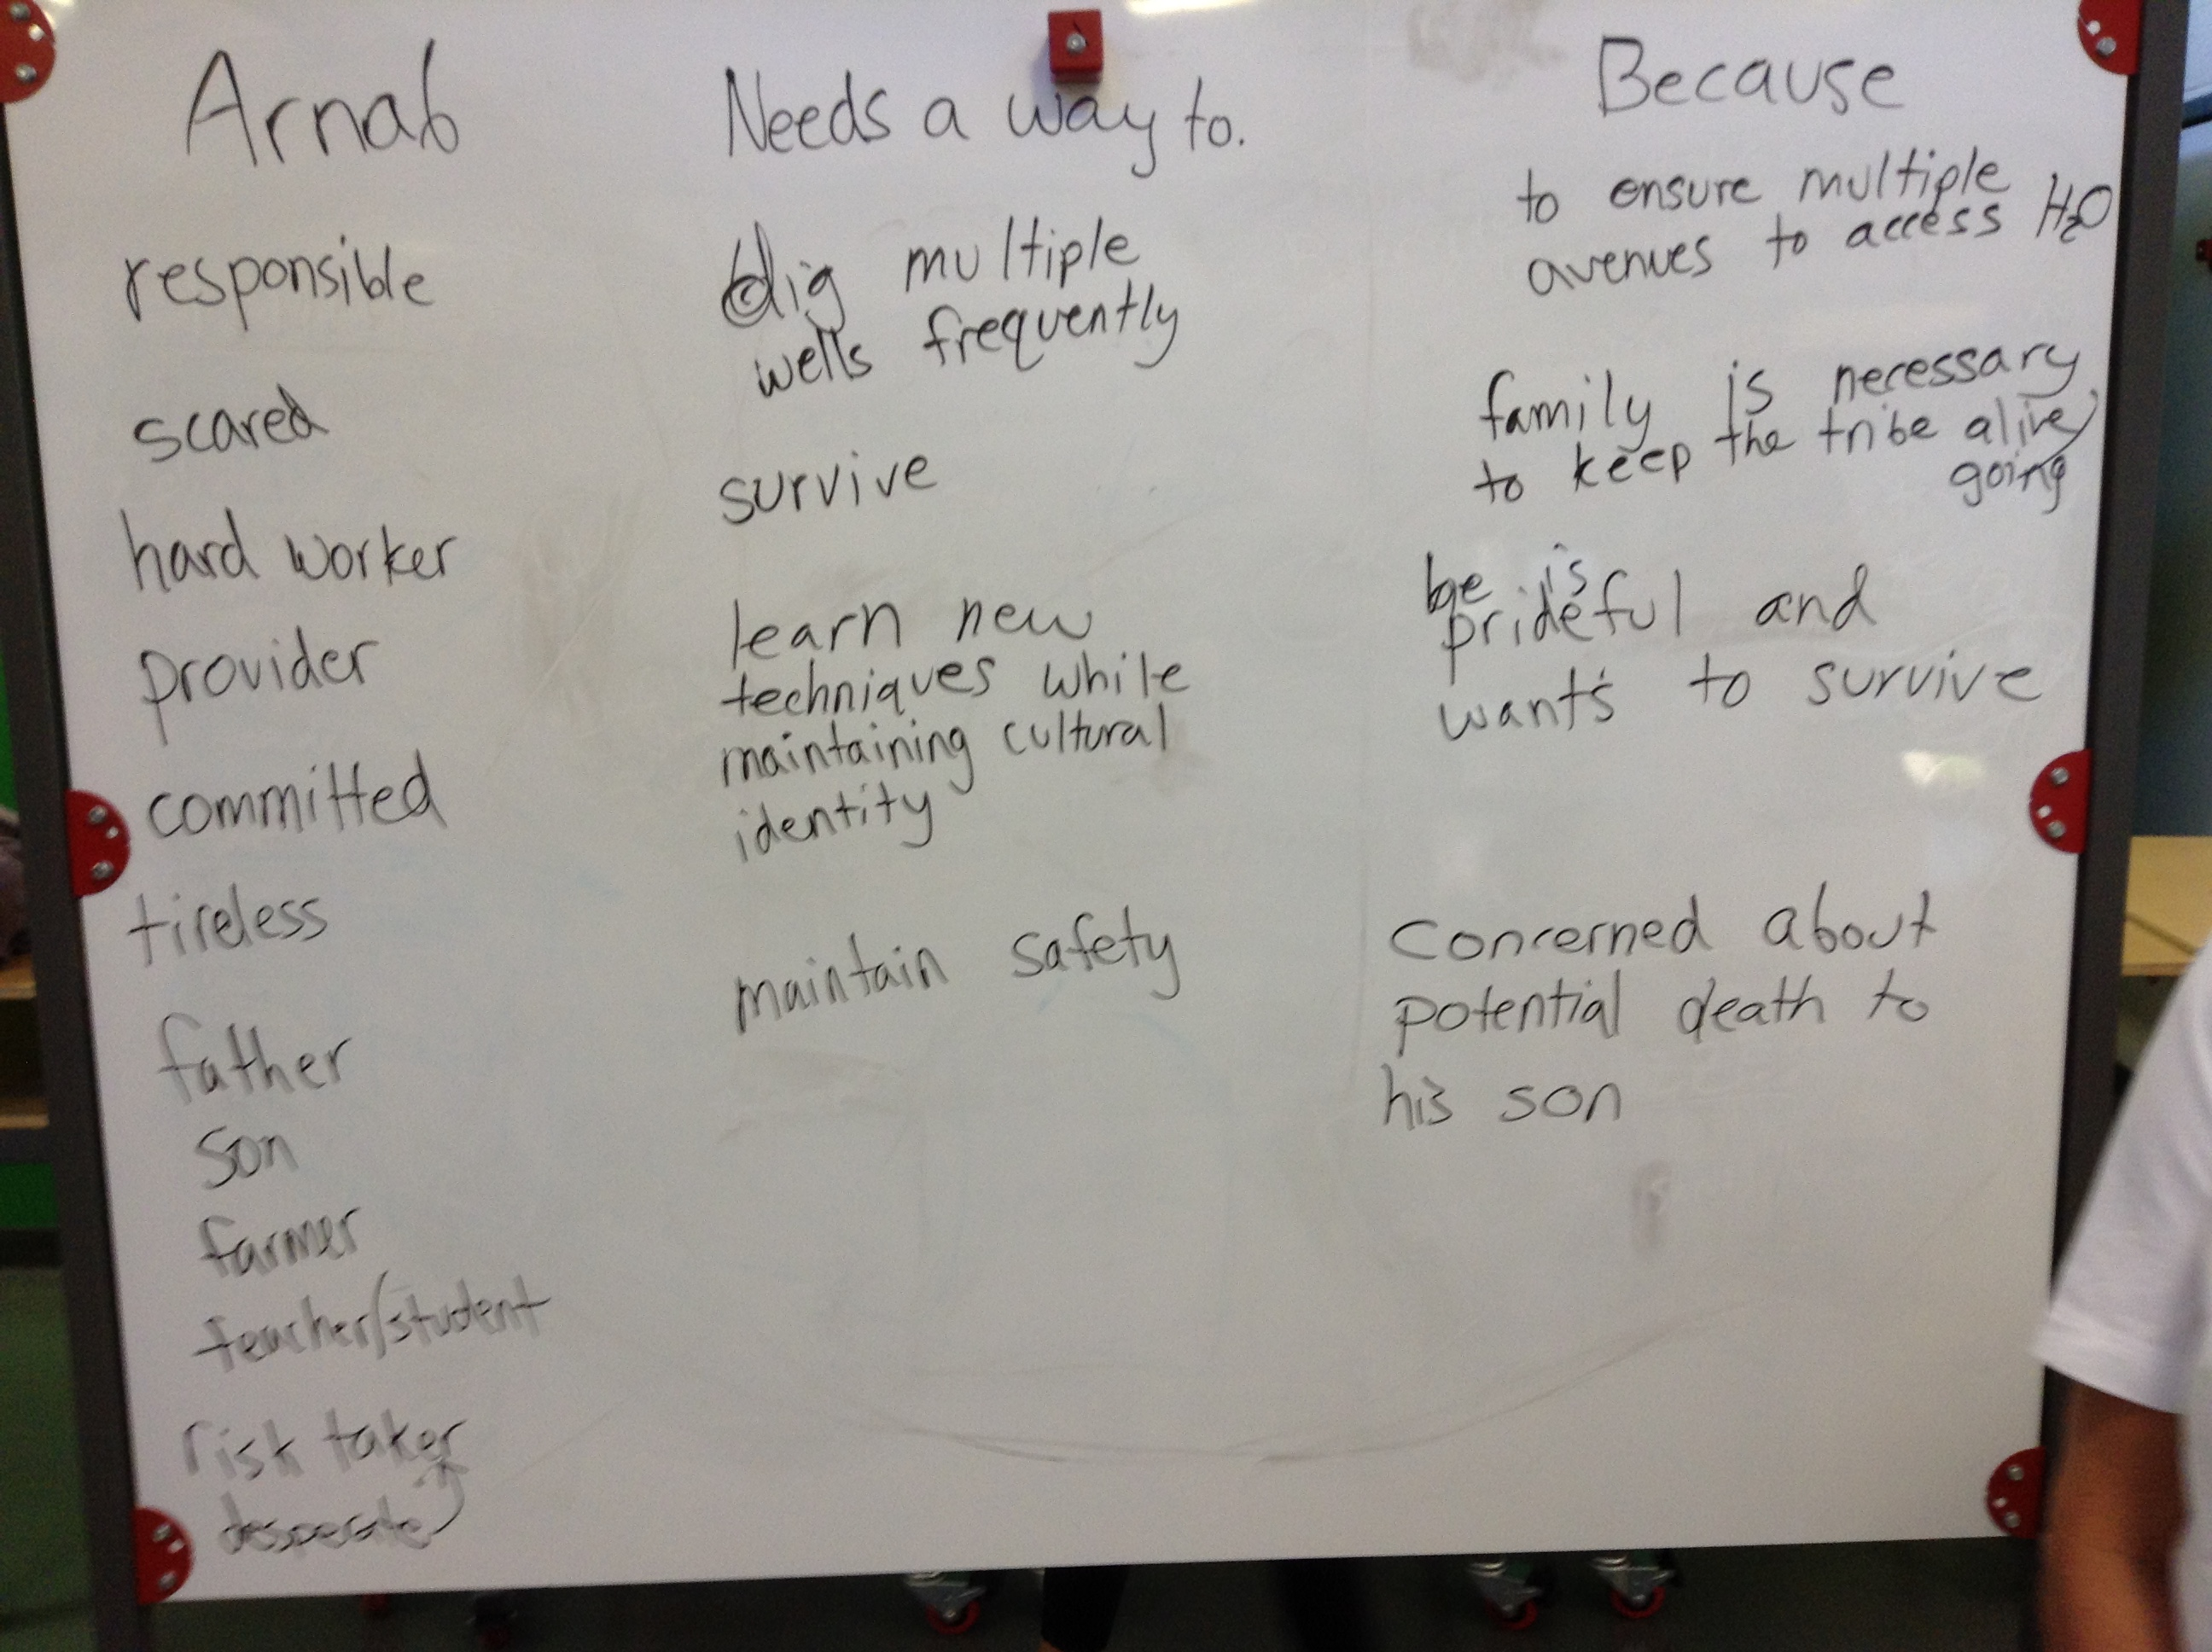 Arnab
responsible
scared
hard worker
provider
committed
tireless
father
son
farmer
teacher/student
risk taker
desperate
Needs a way to.
dig multiple
wells frequently
survive
learn new
techniques while
maintaining cultural
identity
maintain safety
Because
to ensure multiple
avenues to access H₂O
family is necessary
to keep the tribe alive/
going
he is
prideful and
wants to survive
concerned about
potential death to
his son